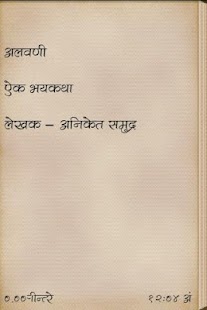 अलवणी
ऐक भयकथा
लेखक – अनिकेत समुद्र
१२:०४ अं